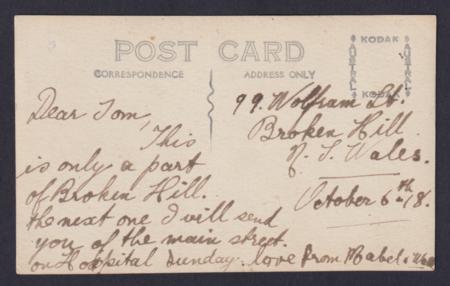 POST CARD
CORRESPONDENCE
ADDRESS ONLY
KODAK
AUSTRAL
AUSTRAL
KODAK
99. Wolfram St.
Broken Hill.
N. S. Wales.
October 6th 18.
Dear Tom,
This
is only a part
of Broken Hill.
the next one I will send
you of the main street.
on Hospital Sunday. love from Mabel &